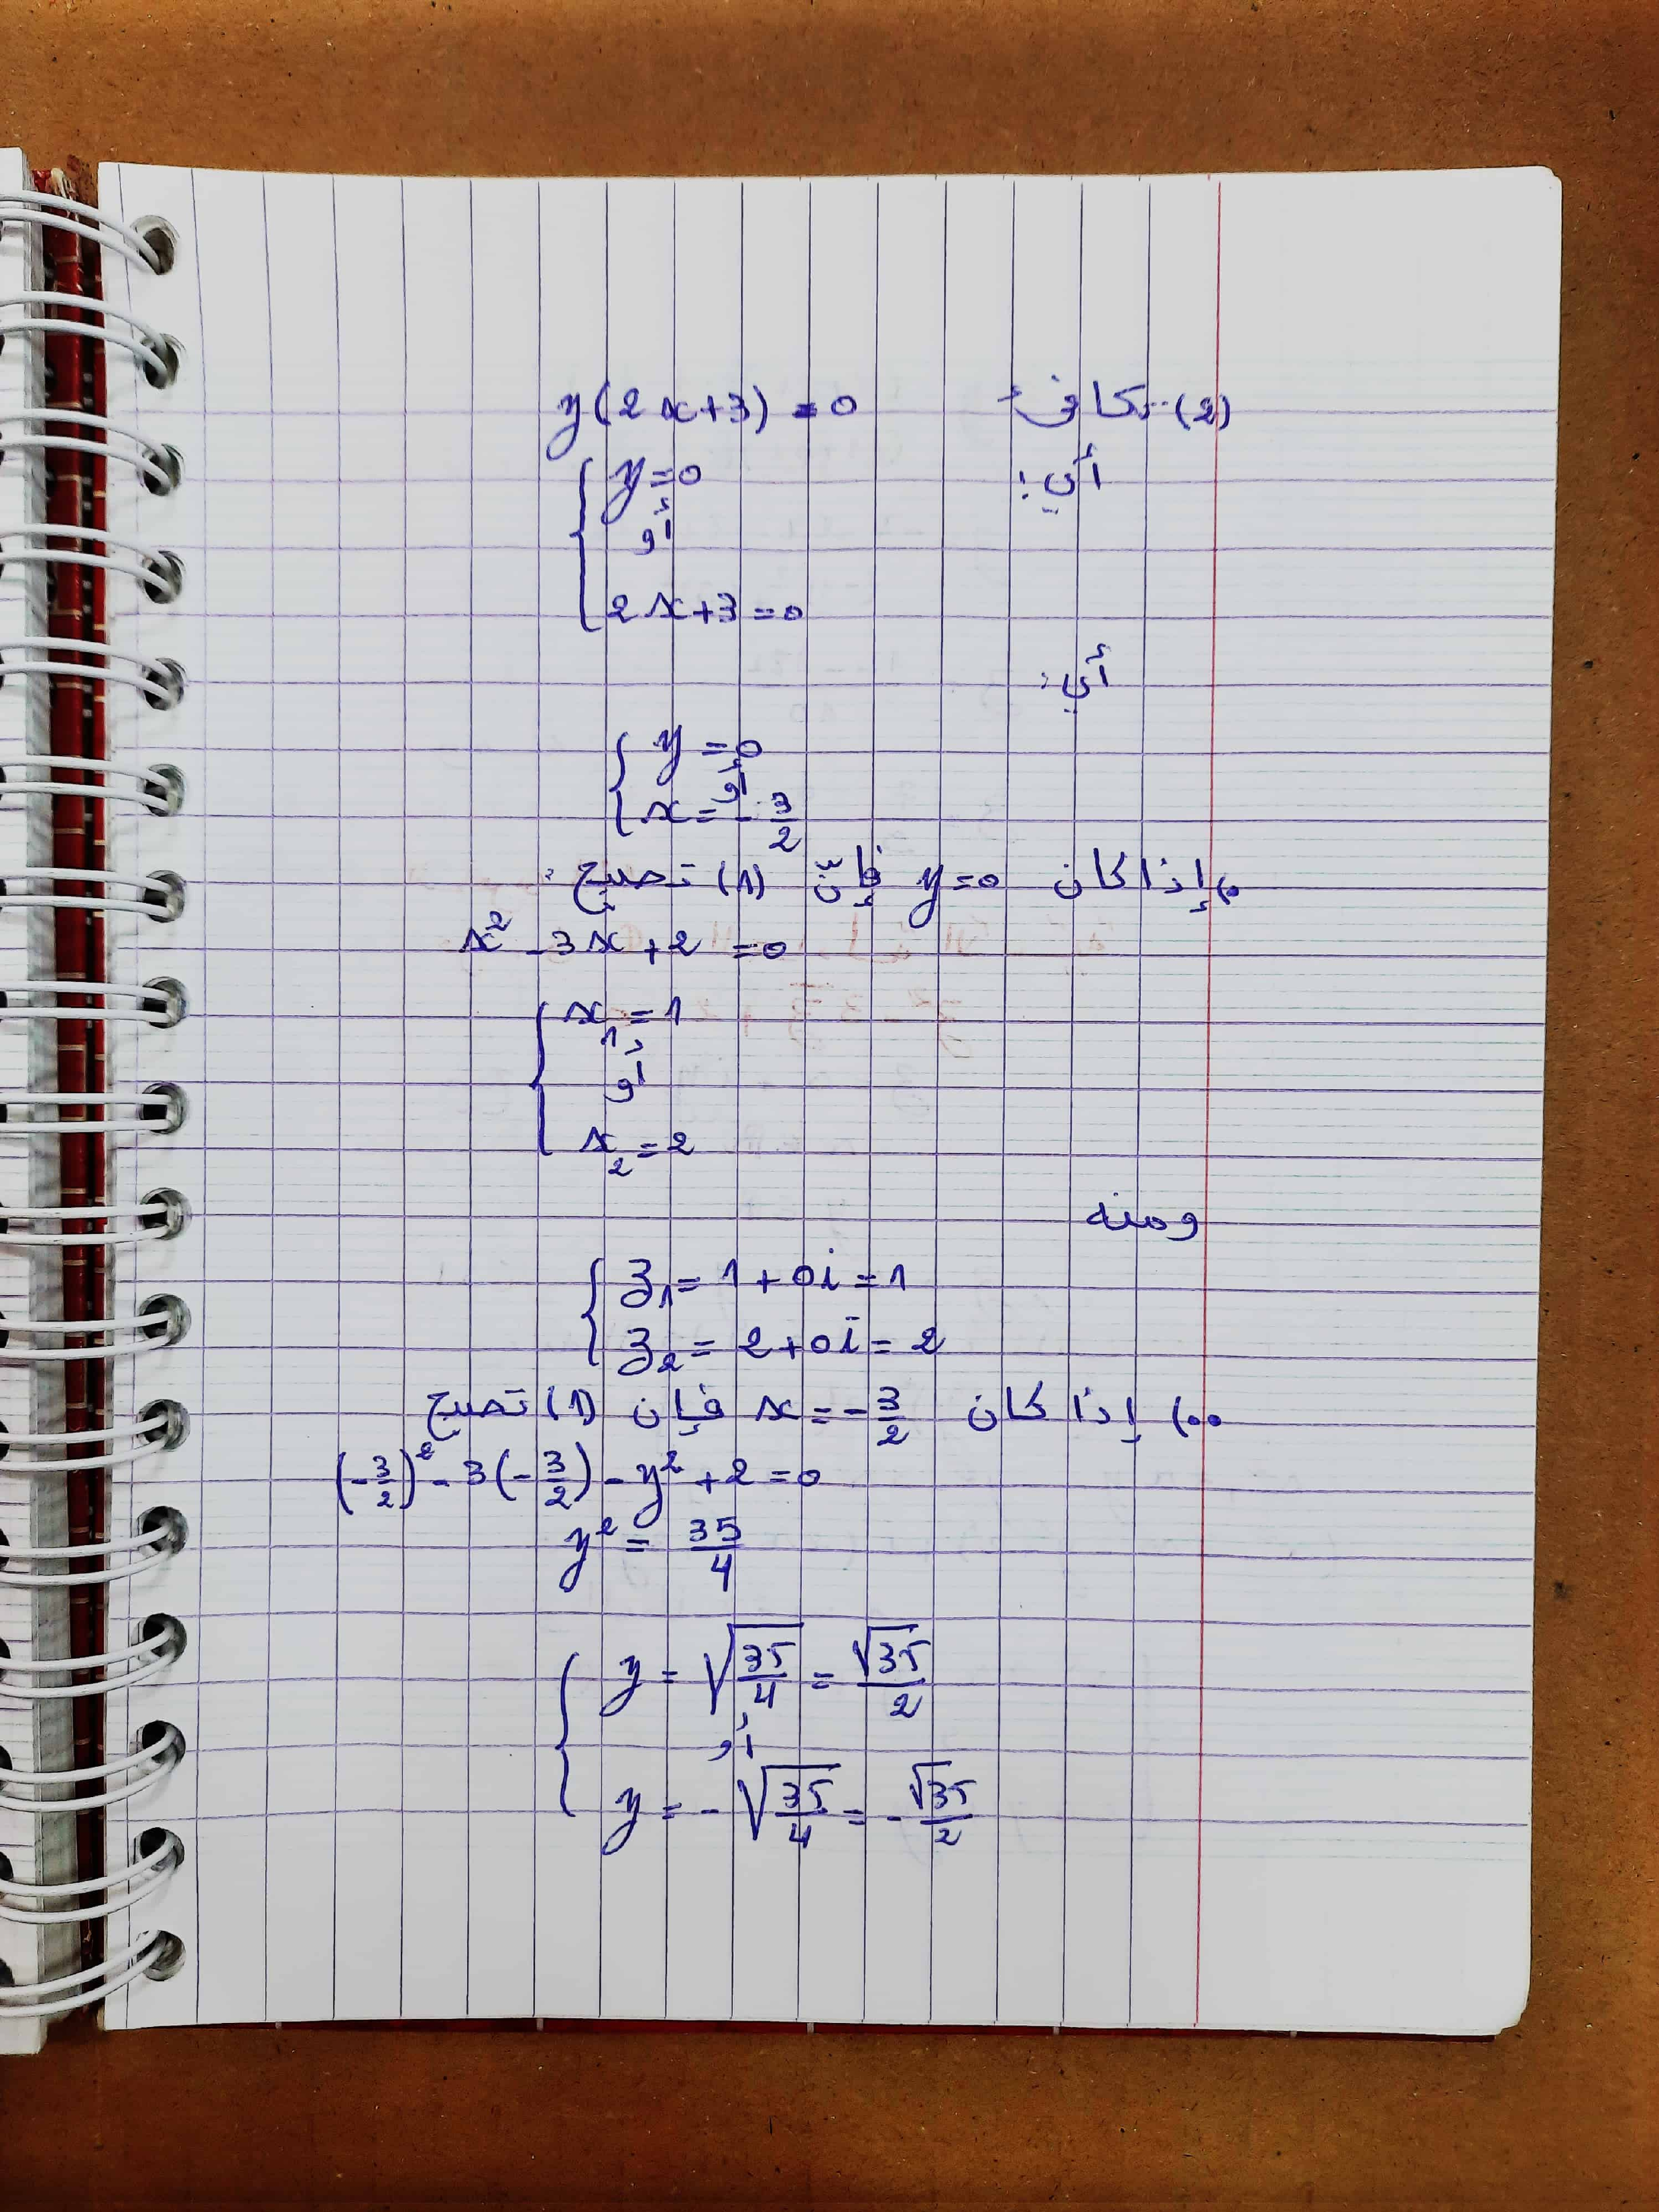 (2) تكافئ y(2x+3) = 0
أي: { y = 0
أو
2x+3 = 0
أي:
{ y = 0
أو
x = -3/2
•) إذا كان y=0 فإنّ (1) تصبح:
x² - 3x + 2 = 0
{ x₁ = 1
أو
x₂ = 2
ومنه
{ z₁ = 1 + 0i = 1
z₂ = 2 + 0i = 2
••) إذا كان x = -3/2 فإن (1) تصبح
(-3/2)² - 3(-3/2) - y² + 2 = 0
y² = 35/4
{ y = √(35/4) = √35/2
أو
y = -√(35/4) = -√35/2